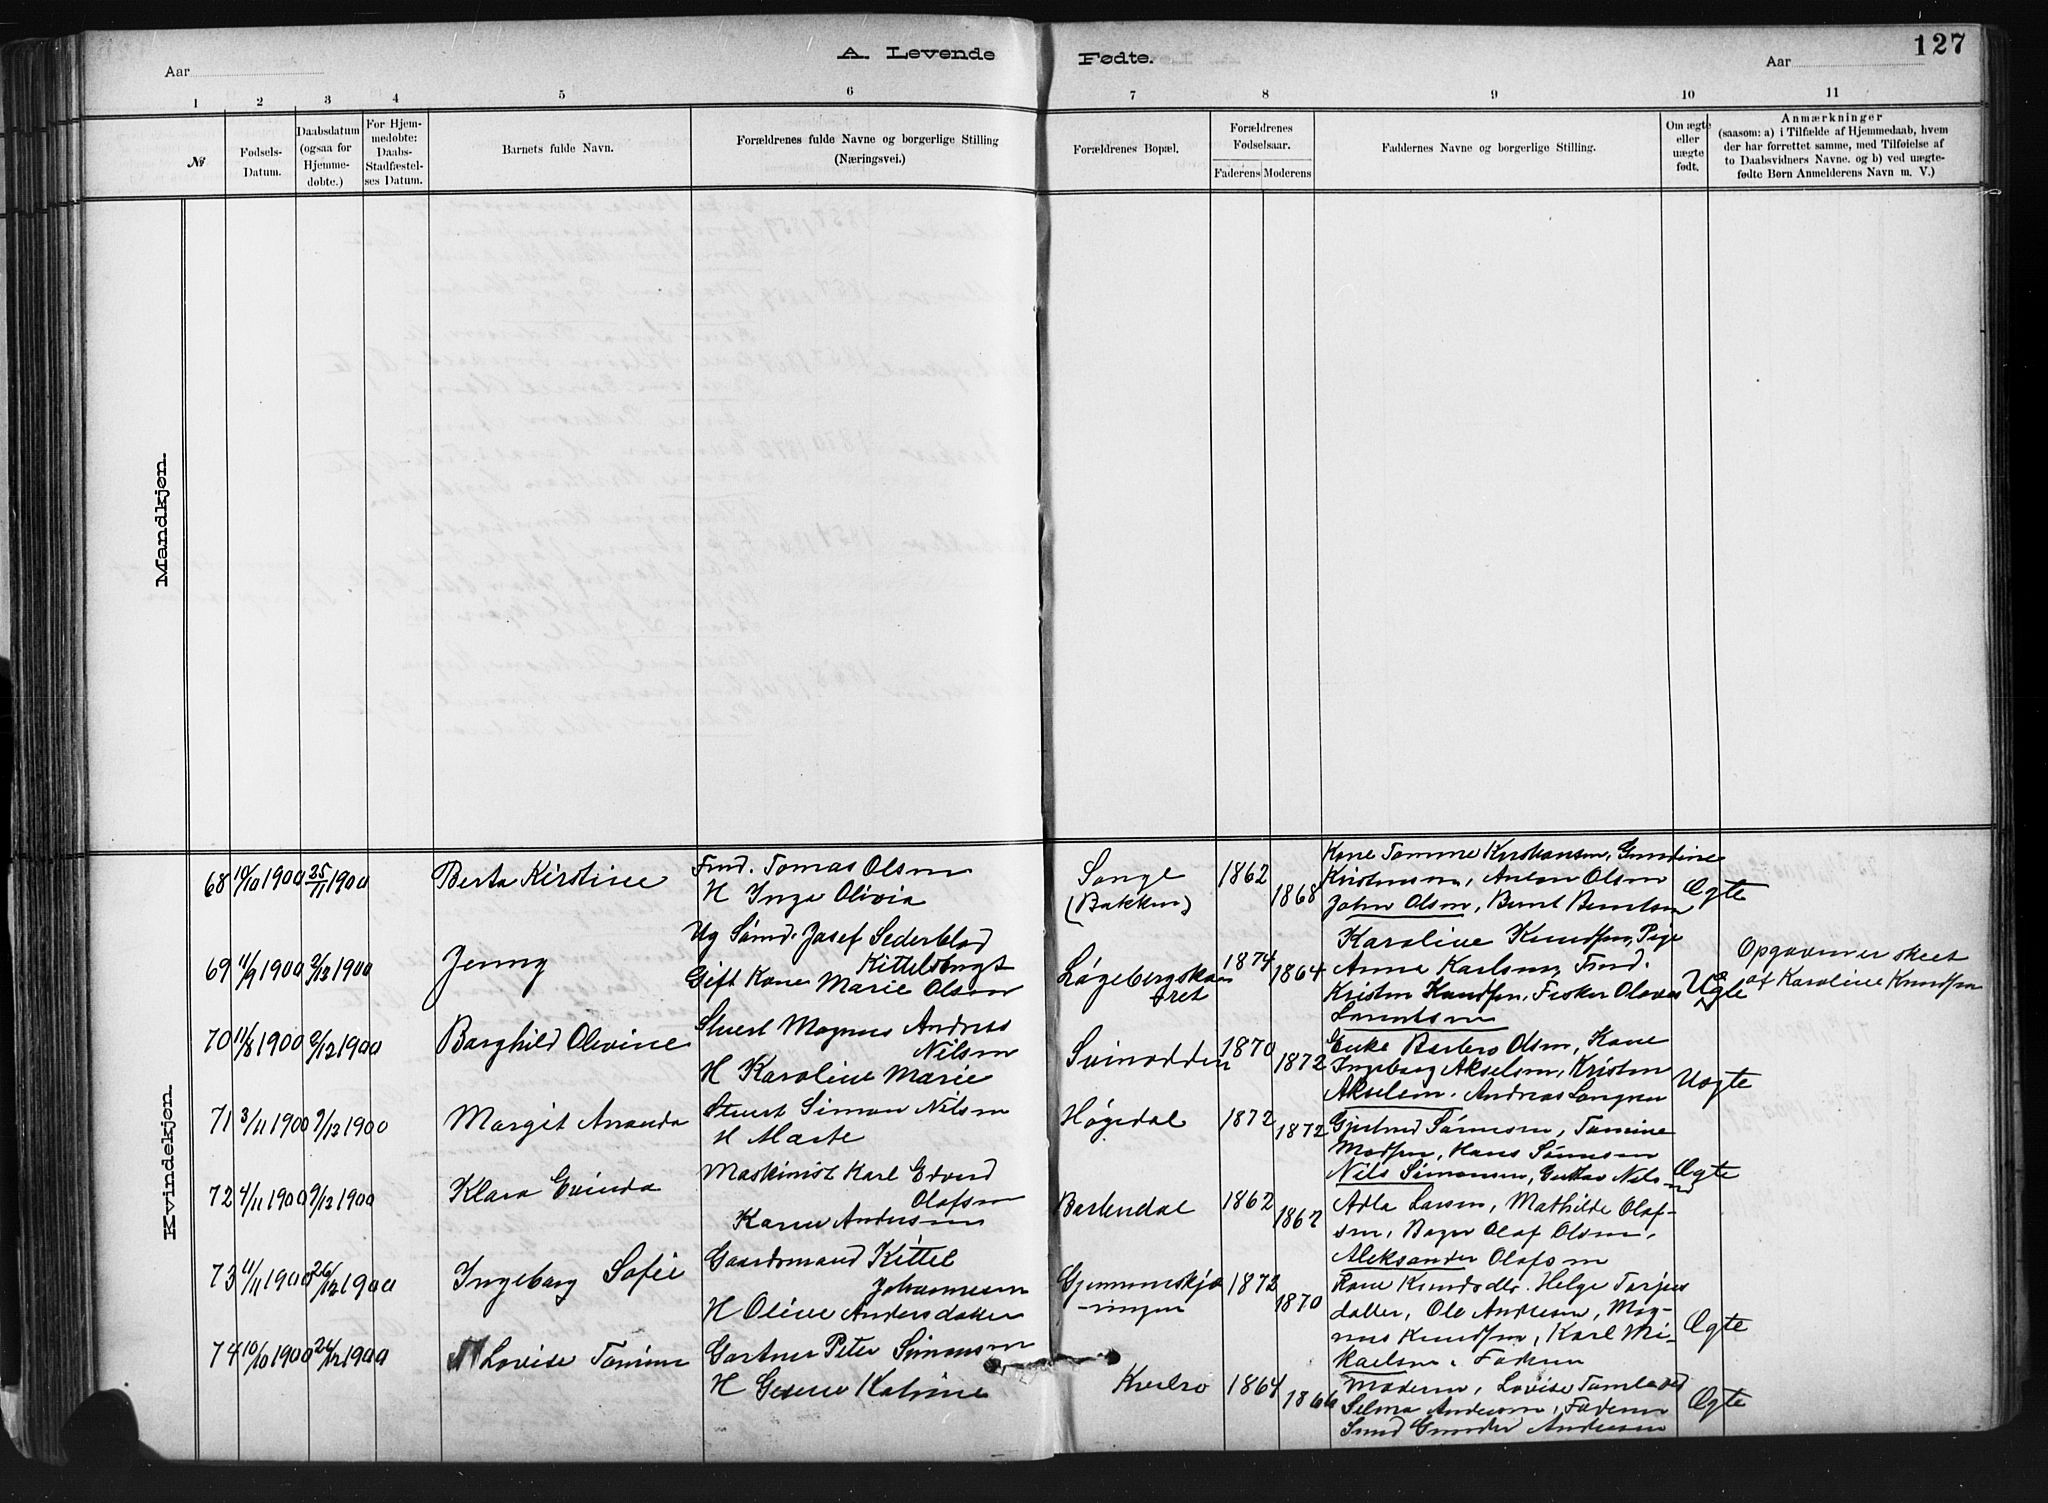 A. Levende Fødte.
127
Aar
Aar
1 2 3 4 5 6 7 8 9 10 11
№
Fødsels-
Datum.
Daabsdatum
(ogsaa for
Hjemme-
døbte.)
For Hjem-
medøbte:
Daabs-
Stadfæstel-
ses Datum.
Barnets fulde Navn.
Forældrenes fulde Navne og borgerlige Stilling
(Næringsvei.)
Forældrenes Bopæl.
Forældrenes
Fødselsaar.
Faderens Moderens
Faddernes Navne og borgerlige Stilling.
Om ægte
eller
uægte
født.
Anmærkninger
(saasom: a) i Tilfælde af Hjemmedaab, hvem
der har forrettet samme, med Tilføielse af
to Daabsvidners Navne. og b) ved uægte-
fødte Børn Anmelderens Navn m. V.)
Mandkjøn.
Kvindekjøn.
68 10/10 1900 25/11 1900
Berta Kirstine
Tomas Olsen
H Inga Olivia
Songe
(Bakken)
1862
1868
Kone Tomine Kristiansen, Gundine
Kristensen, Anton Olsen
John Olsen, Bernt Berntsen
Ægte
69 11/9 1900 2/12 1900
Jenny
Ug Sømd. Josef Sederblad
Gift Kone Marie Olsen
1874
1864
Karoline Knudsen, Pige
Anna Karlsen,
Kristen Knudsen, Fisker Olaves
Larentsen
Uægte
Opgaven er skeet
af Karoline Knudsen
70 11/8 1900 2/12 1900
Borghild Olivine
Stuert Magnus Andreas
Nilsen
H Karoline Marie
Svinodden
1870
1872
Enke Barbro Olsen, Kone
Ingeborg Akselsen, Kristen
Akselsen. Andreas Longren
71 3/11 1900 9/12 1900
Margit Amanda
Stuert Simon Nilsen
H Marte
Høgedal
1872
1872
Gjertrud Sørensen, Tomine
Madsen, Hans Sørensen
Nils Simonsen, Gustav Nils-
en
Ægte
72 4/11 1900 9/12 1900
Klara Evinda
Maskinist Karl Edvard
Olafsen
Karen Andersen
Barlindal
1862
1862
Adla Larsen, Mathilde Olaf-
sen, Olaf Olsen,
Aleksander Olafsen
73 11/11 1900 26/12 1900
Ingeborg Sofie
Gaardmand Kittel
Johannesen
H Oline Andersdatter
1872
1870
Kone Helge Tarjes
datter, Ole Andresen, Mag-
nus Knudsen, Karl Mi-
kaelsen, Faderen
Ægte
74 10/10 1900 26/12 1900
Lovise Tomine
Gartner Peter Simonsen
H Gesine Katrine
1864
1866
Moderen, Lovise
Selma Andersen, Faderen
Gunder Andersen
Ægte